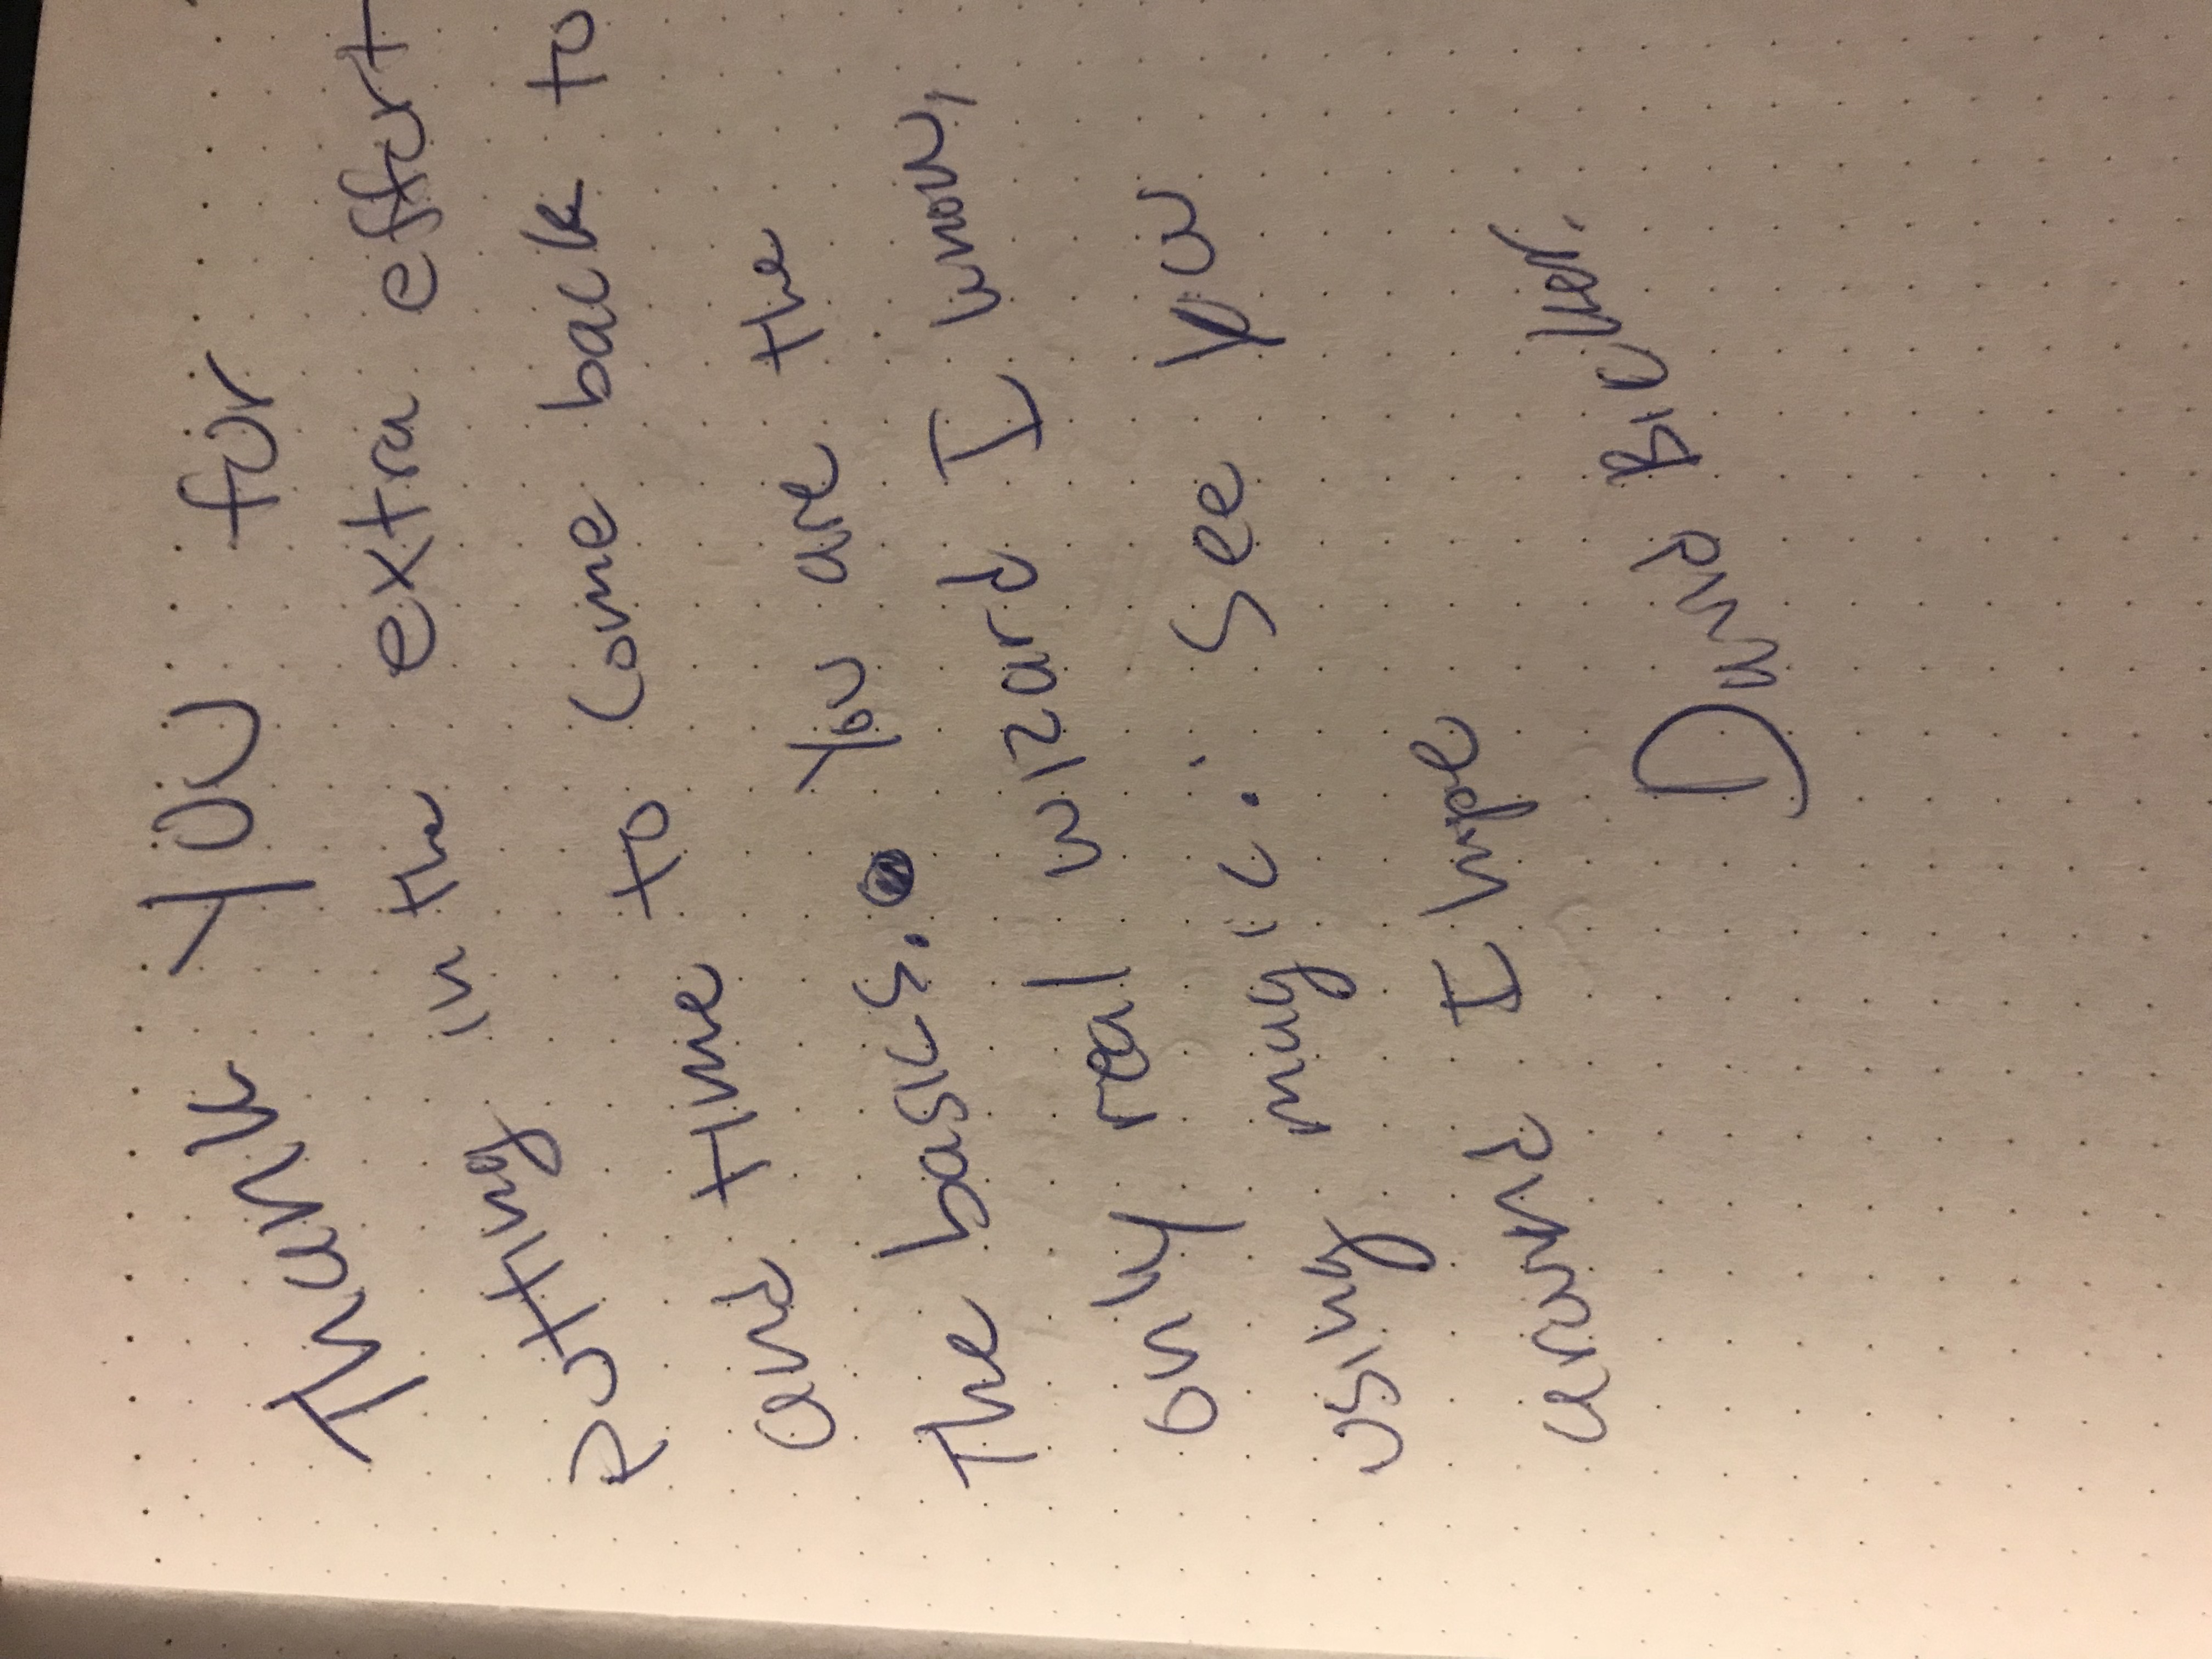 Thank YOU for
putting in the extra effort
and time to come back to
The basics. You are the
only real wizard I know,
using magic. See you
around I hope
David Bicker.